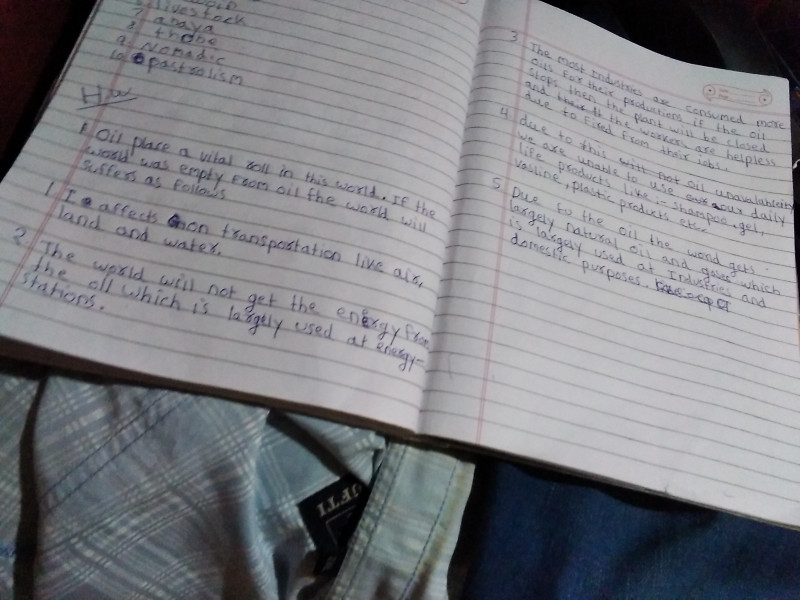 livestock
8 abaya
thobe
9 Nomadic
10 pastrolism
HW
Oil place a vital roll in this world. If the
world was empty from oil the world will
suffers as follows
1 affects on transportation like air,
land and water.
2 The world will not get the energy from
the oil which is largely used at energy-
stations.
3 The most industries are consumed more
oils for their productions if the oil
stops then the plant will be closed
and the workers are helpless
due to fired from their jobs.
4 due to this oil unavalablity
we are unable to use our daily
life products like :- shampoo, gel,
vasline, plastic products etc.
5 Due to the oil the world gets
largely natural oil and gases which
is largely used at Industries and
domestic purposes.